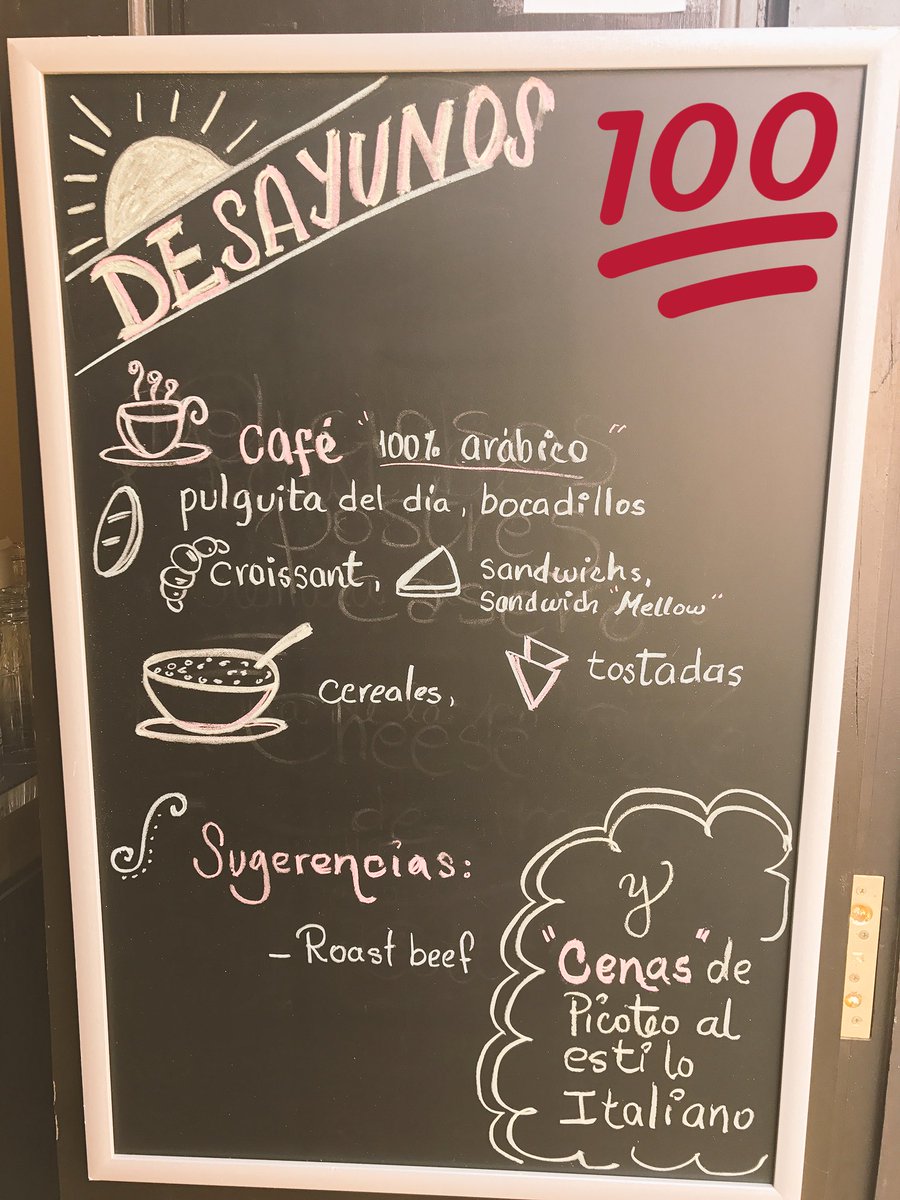 DESAYUNOS
100
Café "100% arábico"
pulguita del día, bocadillos
croissant, sandwichs,
Sandwich "Mellow"
cereales, tostadas
Sugerencias:
- Roast beef
y
"Cenas" de
Picoteo al
estilo
Italiano
postres
Cheese
de